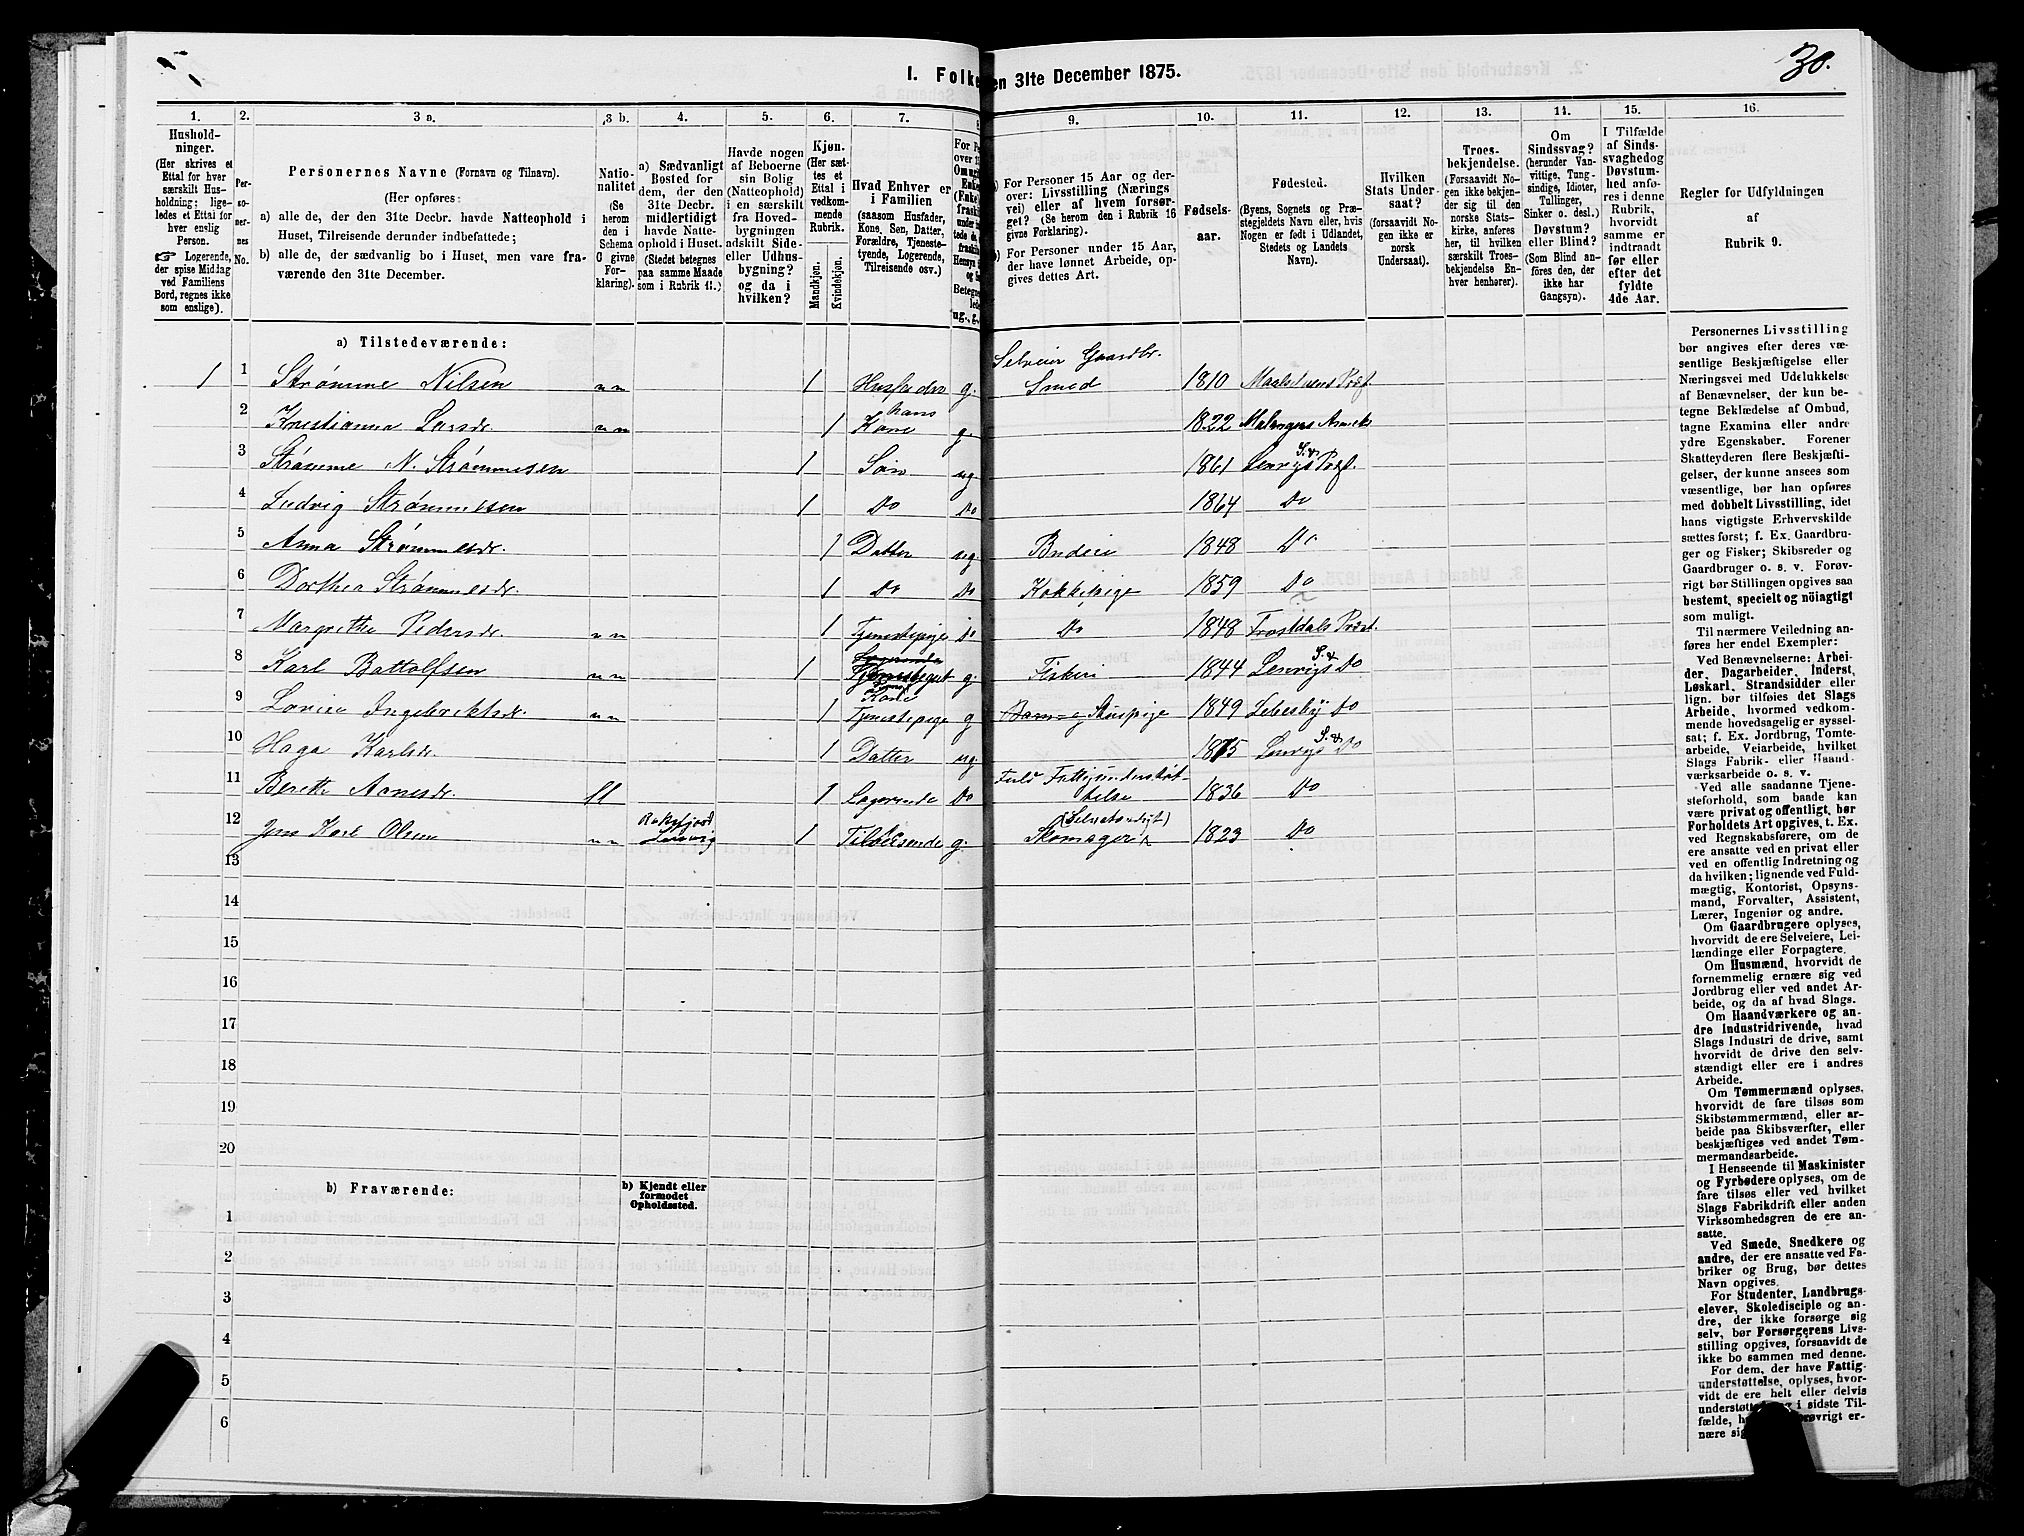 30.
I. Folke
en 31te December 1875.
1. 2. 3 a. 3 b. 4. 5. 6. 7. 8
9. 10. 11. 12. 13. 14. 15. 16.
Hushold-
ninger.
(Her skrives et
Ettal for hver
særskilt Hus-
holdning; lige-
ledes et Ettal for
hver enslig
Person.
☞ Logerende,
der spise Middag
ved Familiens
Bord, regnes ikke
som enslige).
Per-
so-
ner-
nes
No.
Personernes Navne (Fornavn og Tilnavn).
(Her opføres:
a) alle de, der den 31te Decbr. havde Natteophold i
Huset, Tilreisende derunder indbefattede;
b) alle de, der sædvanlig bo i Huset, men vare fra-
værende den 31te December.
Natio-
nalitet
(Se
herom
den i
Schema
C givne
For-
klaring).
a) Sædvanligt
Bosted for
dem, der den
31te Decbr.
midlertidigt
havde Natte-
ophold i Huset.
(Stedet betegnes
paa samme Maade
som i Rubrik 11.)
Havde nogen
af Beboerne
sin Bolig
(Natteophold)
i en særskilt
fra Hoved-
bygningen
adskilt Side-
eller Udhus-
bygning?
og da i
hvilken?
Kjøn.
(Her sæt-
tes et
Ettal i
vedkom-
mende
Rubrik.
Mandkjøn.
Kvindekjøn.
Hvad Enhver er
i Familien
(saasom Husfader,
Kone, Søn, Datter,
Forældre, Tjeneste-
tyende, Logerende,
Tilreisende osv.)
ug., g.,
a) For Personer 15 Aar og der-
over: Livsstilling (Nærings
vei) eller af hvem forsør-
get? (Se herom den i Rubrik 16
givne Forklaring).
b) For Personer under 15 Aar,
der have lønnet Arbeide, op-
gives dettes Art.
Fødsels-
aar.
Fødested.
(Byens, Sognets og Præ-
stegjeldets Navn eller, hvis
Nogen er født i Udlandet,
Stedets og Landets
Navn).
Hvilken
Stats Under-
saat?
(forsaavidt No-
gen ikke er
norsk
Undersaat).
Troes-
bekjendelse.
(Forsaavidt No-
gen ikke bekjen-
der sig til den
norske Stats-
kirke, anføres
her, til hvilken
særskilt Troes-
bekjendelse En-
hver henhører).
Om
Sindssvag?
(herunder Van-
vittige, Tung-
sindige, Idioter,
Tullinger,
Sinker o. desl.)
Døvstum?
eller Blind?
(Som Blind an-
føres den, der
ikke har
Gangsyn).
I Tilfælde
af Sinds-
svaghedog
Døvstum-
hed anfø-
res i denne
Rubrik,
hvorvidt
samme er
indtraadt
før eller
efter det
fyldte
4de Aar.
Regler for Udfyldningen
af
Rubrik 9.
a) Tilstedeværende:
1 1 Strømme Nilsen nn 1 Husfader g. Selveier Gaardbr. Smed 1810 Maalselvens Præst.
2 Kristianna Larsdr. nn 1 hans Kone g. 1822 Malangens Annex
3 Strømme N. Strømmesen 1 Søn ug 1861 Lenvigs S. & Præst.
4 Ludvig Strømmesen 1 Do Do 1864 Do
5 Anna Strømmesdr. 1 Datter ug. Budeie 1848 Do
6 Dorthea Strømmesdr. 1 Do Do Kokkepige 1859 Do
7 Margrethe Pedersdr. nn 1 Tjenestepige Do Do 1848 Frostdals Præst.
8 Karl Battolfsen nn 1 Logerende Tjenestegut g. Fiskeri 1844 Lenvigs S. & Do
9 Lovise Ingebriktsdr. nn 1 hans Kone Tjenestepige g Barn og Stuepige 1849 Lebesby Do
10 Haga Karlsdr. 1 Datter ug. 1875 Lenvigs S. & Do
11 Berethe Arnesdr. ll 1 Logerende Do Fuld Fattigunderstøt-telse 1836 Do
12 Jens Karl Olsen nn Lenvig 1 Tilreisende g. Skomager (Selvstændigt) 1823 Do
13
14
15
16
17
18
19
20
b) Fraværende:
b) Kjendt eller
formodet
Opholdssted.
1
2
3
4
5
6
Personernes Livsstilling
bør angives efter deres væ-
sentlige Beskjæftigelse eller
Næringsvei med Udelukkelse
af Benævnelser, der kun be-
tegne Beklædelse af Ombud,
tagne Examina eller andre
ydre Egenskaber. Forener
Skatteyderen flere Beskjæfti-
gelser, der kunne ansees som
væsentlige, bør han opføres
med dobbelt Livsstilling, idet
hans vigtigste Erhvervskilde
sættes først; f. Ex. Gaardbru-
ger og Fisker; Skibsreder og
Gaardbruger o. s. v. Forøv-
rigt bør Stillingen opgives saa
bestemt, specielt og nøiagtigt
som muligt.
Til nærmere Veiledning an-
føres her endel Exempler:
Ved Benævnelserne: Arbei-
der, Dagarbeider, Inderst,
Løskarl, Strandsidder eller
lign. bør tilføies det Slags
Arbeide, hvormed vedkom-
mende hovedsagelig er syssel-
sat; f. Ex. Jordbrug, Tomte-
arbeide, Veiarbeide, hvilket
Slags Fabrik- eller Haand-
værksarbeide o. s. v.
Ved alle saadanne Tjene-
steforhold, som baade kan
være privat og offentligt, bør
Forholdets Art opgives, t. Ex.
ved Regnskabsførere, om de
ere ansatte ved en privat eller
ved en offentlig Indretning og
da hvilken; lignende ved Fuld-
mægtig, Kontorist, Opsyns-
mand, Forvalter, Assistent,
Lærer, Ingeniør og andre.
Om Gaardbrugere oplyses,
hvorvidt de ere Selveiere, Lei-
lændinge eller Forpagtere.
Om Husmænd, hvorvidt de
fornemmelig ernære sig ved
Jordbrug eller ved andet Ar-
beide, og da af hvad Slags.
Om Haandværkere og an-
dre Industridrivende, hvad
Slags Industri de drive, samt
hvorvidt de drive den selv-
stændigt eller ere i andres
Arbeide.
Om Tømmermænd oplyses,
hvorvidt de fare tilsøs som
Skibstømmermænd, eller ar-
beide paa Skibsværfter, eller
beskjæftiges ved andet Tøm-
mermandsarbeide.
I Henseende til Maskinister
og Fyrbødere oplyses, om de
fare tilsøs eller ved hvilket
Slags Fabrikdrift eller anden
Virksomhedsgren de ere an-
satte.
Ved Smede, Snedkere og
andre, der ere ansatte ved Fa-
briker og Brug, bør dettes
Navn opgives.
For Studenter, Landbrugs-
elever, Skoledisciple og an-
dre, der ikke forsørge sig
selv, bør Forsørgerens Livs-
stilling opgives, forsaavidt de
ikke bo sammen med denne.
For dem, der have Fattig-
understøttelse, oplyses, hvor-
vidt de ere helt eller delvis